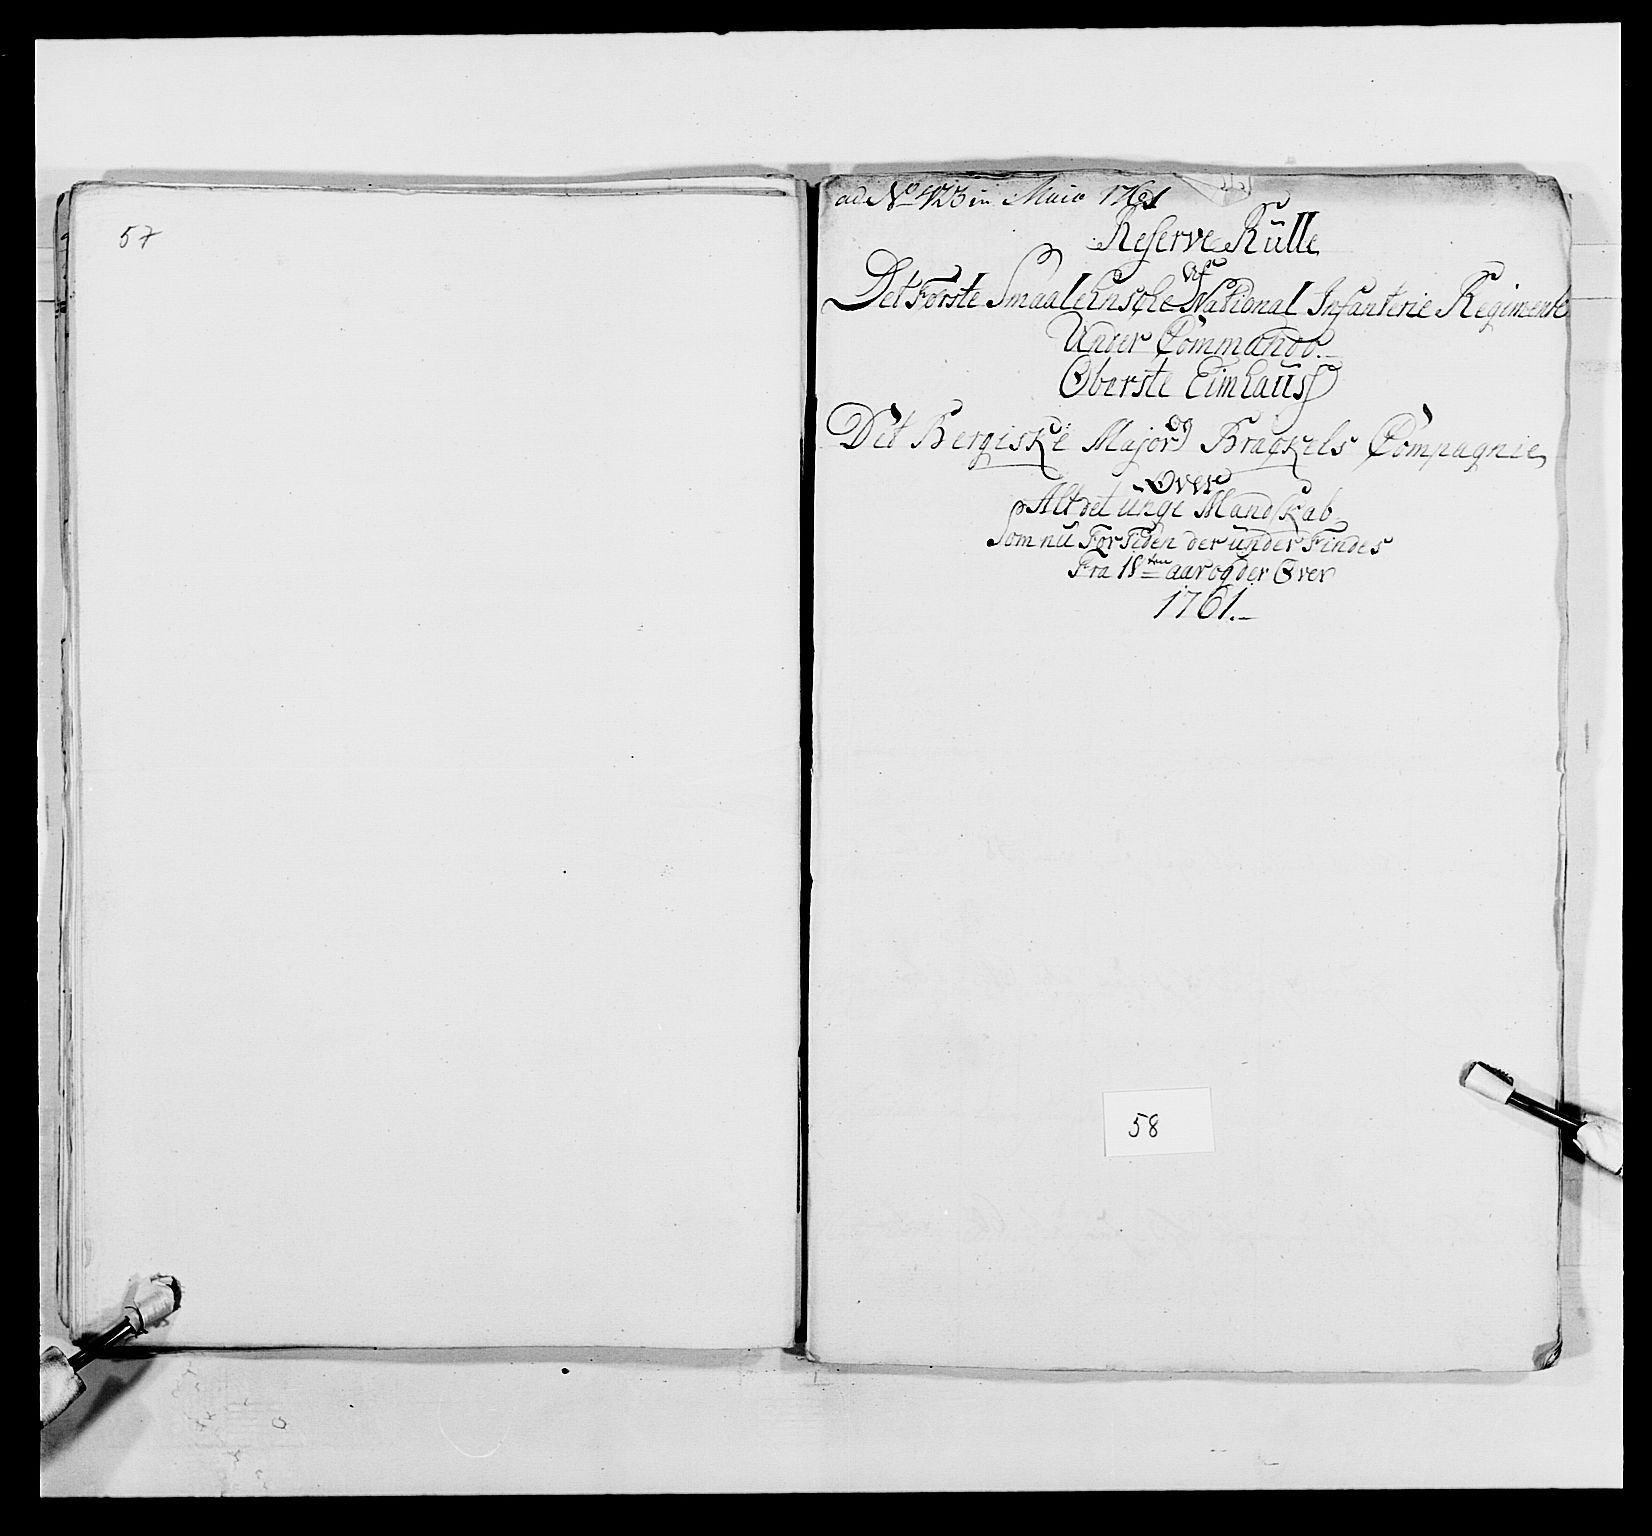 57
ad No 423 in Maio 1761
Reserve Rülle
Af
Det Første Smaalehnsche National Infanterie Regimente
Under Commando.
Oberste Eimhaus
og
Det Bergiske Major Brackels Compagnie
Over
Alt det ünge Mandskab
Som nü For Tiden der ünder Findes
Fra 18ten aar og der Over
1761.
58